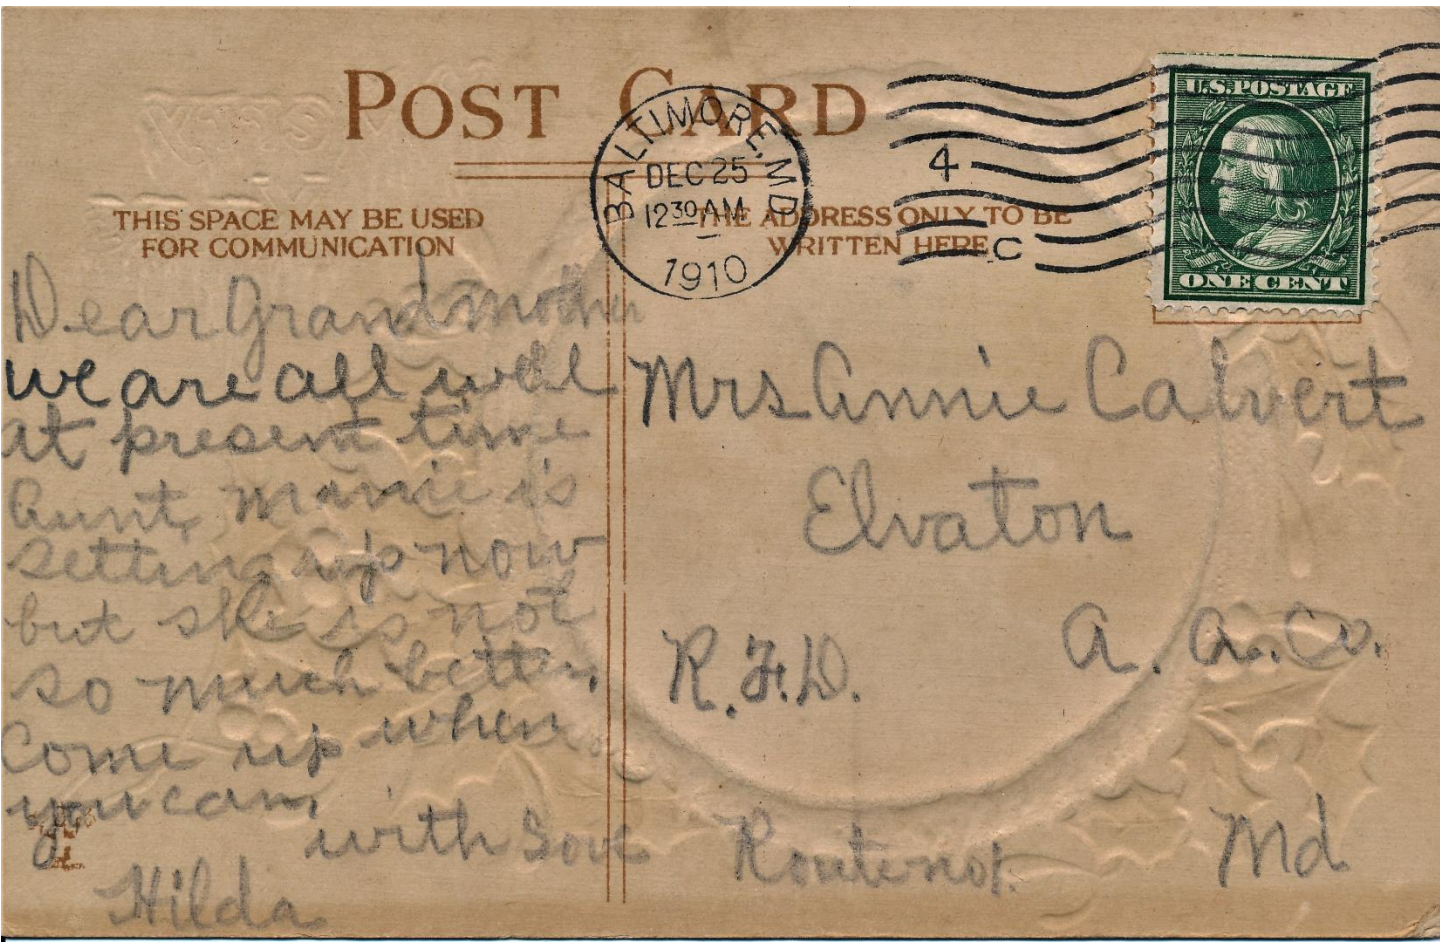 POST CARD
BALTIMORE, MD
DEC 25
12 30 AM
1910
4
C
U.S. POSTAGE
ONE CENT
THIS SPACE MAY BE USED
FOR COMMUNICATION
THE ADDRESS ONLY TO BE
WRITTEN HERE
Dear Grandmother
we are all well
at present time
Aunt, mamie is
setting up now
but she is not
so much better,
Come up when
you can,
with Love
Hilda
Mrs Annie Calvert
Elvaton
A. A. Co.
R.F.D.
Route no 1.
Md